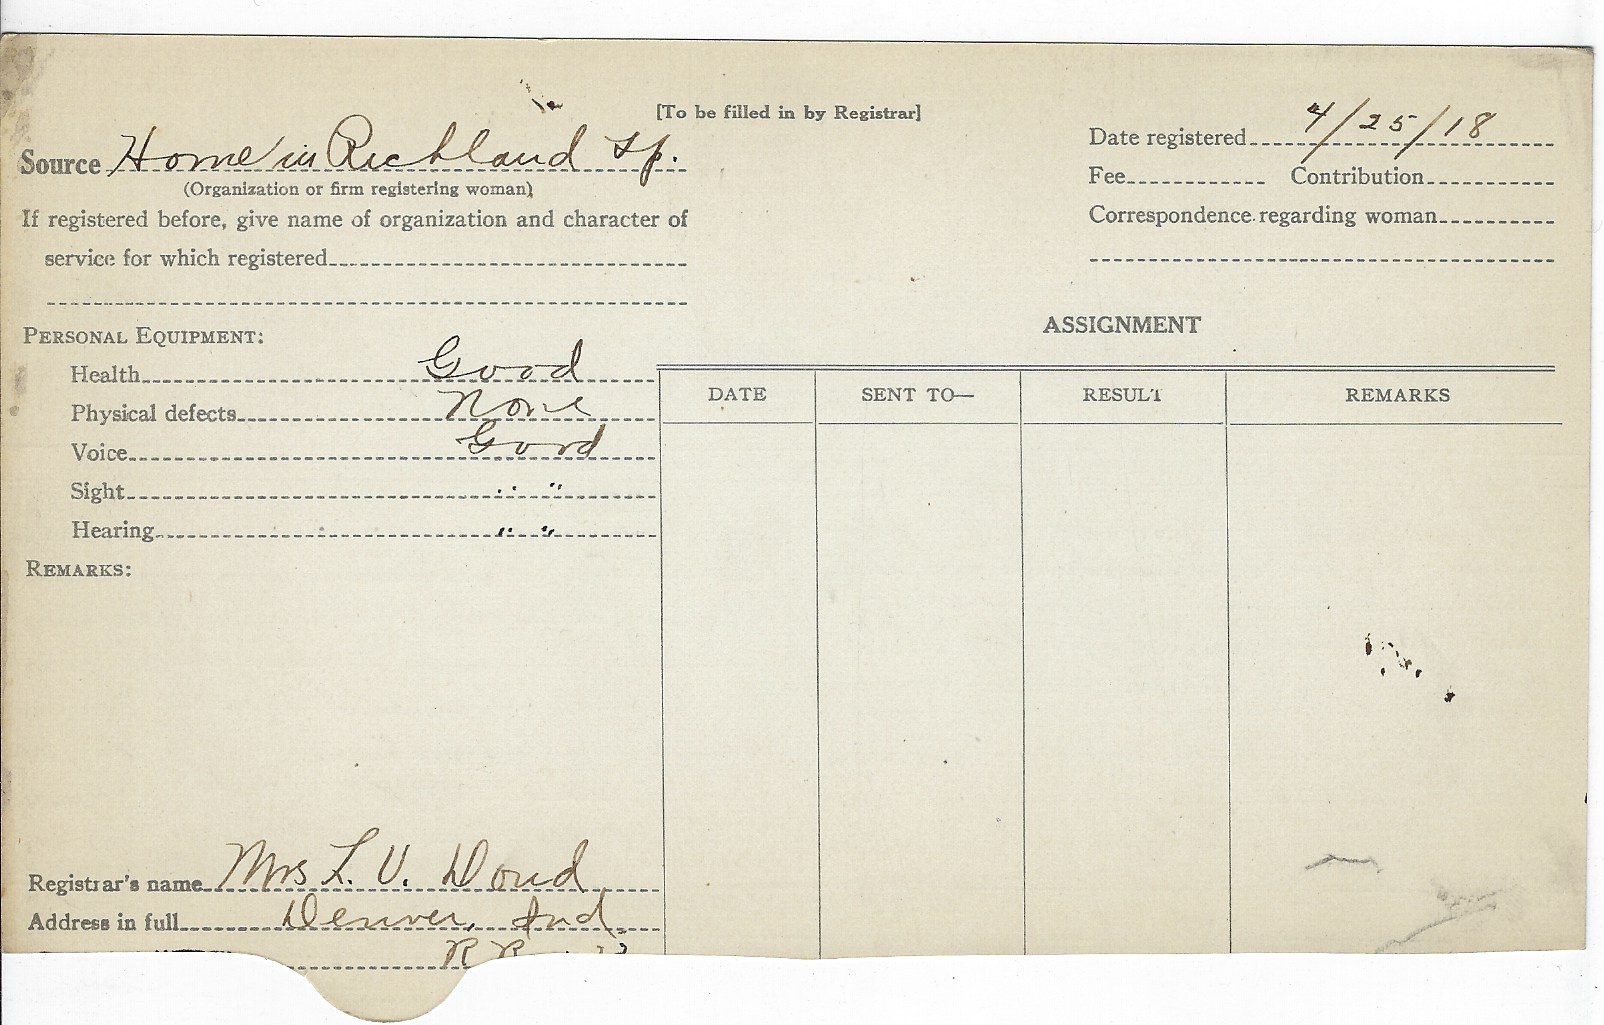 [To be filled in by Registrar]
Source Home in Richland Tp.
(Organization or firm registering woman)
If registered before, give name of organization and character of
service for which registered
Date registered 4/25/18
Fee Contribution
Correspondence regarding woman
PERSONAL EQUIPMENT:
Health Good
Physical defects None
Voice Good
Sight " "
Hearing " "
REMARKS:
ASSIGNMENT
DATE SENT TO— RESULT REMARKS
Registrar's name Mrs L. V. Doud
Address in full Denver, Ind.
R R